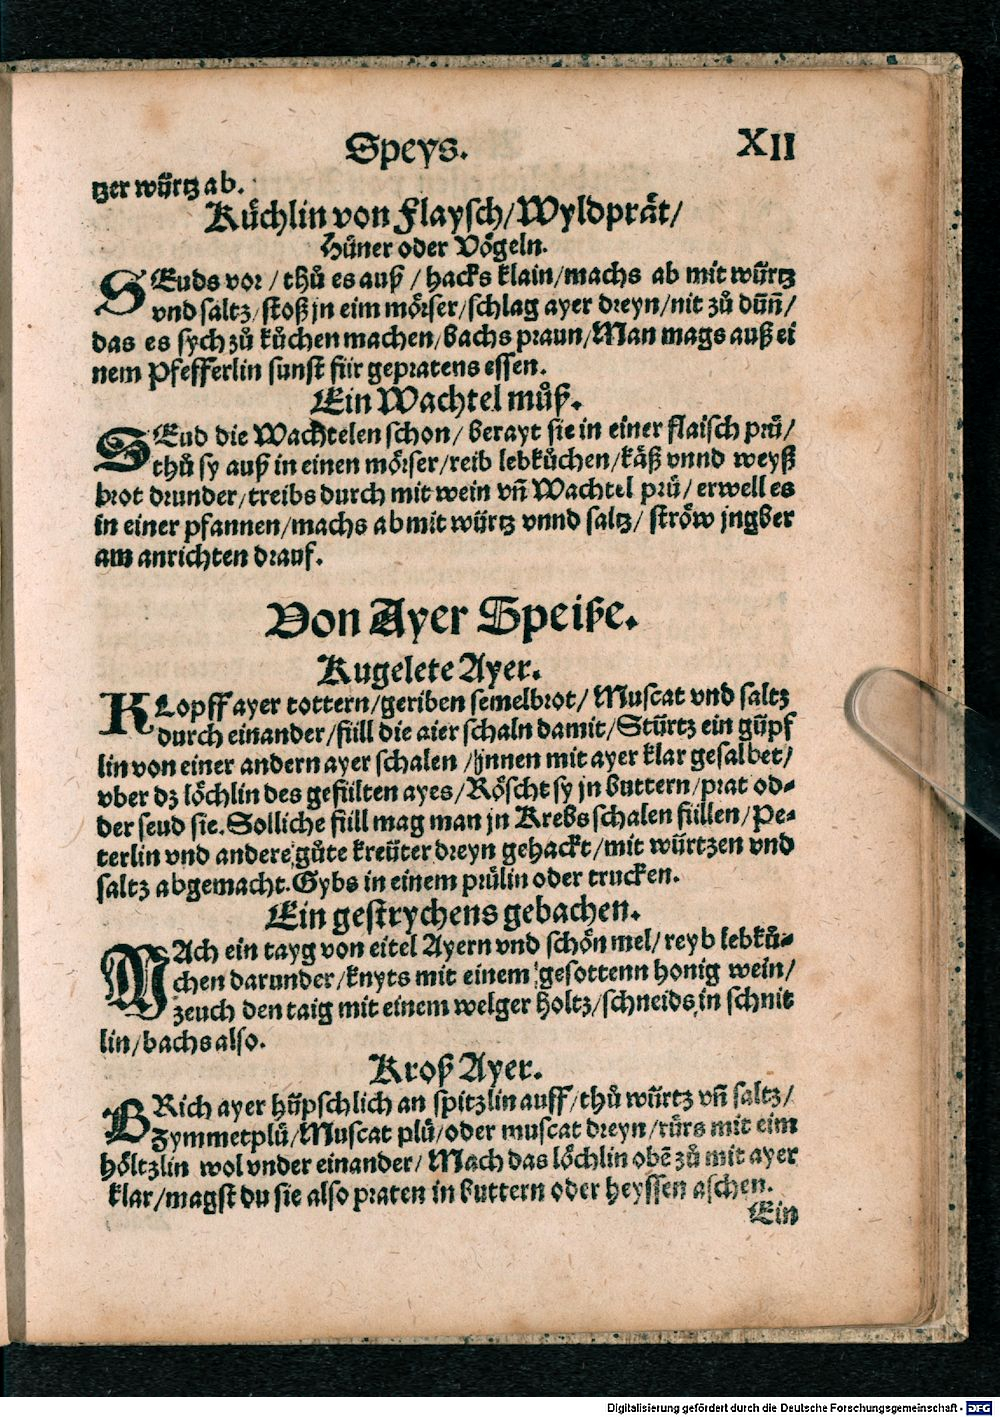 Speys. XII
tzer wuͤrtz ab.
Kuͤchlin von Flaysch/Wyldpraͤt/
Huͤner oder Voͤgeln.
SEuds vor/thuͦ es auß/hacks klain/machs ab mit wuͤrtz
vnd saltz/stoß jn eim moͤrser/schlag ayer dreyn/nit zuͦ duͤn̄/
das es sych zuͦ kuͦchen machen/bachs praun/Man mags auß ei
nem Pfefferlin sunst für gepratens essen.
Ein Wachtel muͦß.
SEud die Wachtelen schon/berayt sie in einer flaisch pruͤ/
thuͦ sy auß in einen moͤrser/reib lebkuͦchen/kaͤß vnnd weyß
brot drunder/treibs durch mit wein vn̄ Wachtel pruͤ/erwell es
in einer pfannen/machs ab mit wuͤrtz vnnd saltz/stroͤw jngber
am anrichten drauf.
Von Ayer Speiße.
Kugelete Ayer.
KLopff ayer tottern/geriben semelbrot/Muscat vnd saltz
durch einander/füll die aier schaln damit/Stuͤrtz ein guͤpf
lin von einer andern ayer schalen/jnnen mit ayer klar gesalbet/
vber dz loͤchlin des gefülten ayes/Roͤscht sy jn buttern/prat od-
der seud sie. Solliche füll mag man jn Krebs schalen füllen/Pe-
terlin vnd andere guͦte kreüter dreyn gehackt/mit wuͤrtzen vnd
saltz abgemacht. Gybs in einem pruͤlin oder trucken.
Ein gestrychens gebachen.
MAch ein tayg von eitel Ayern vnd schoͤn mel/reyb lebkuͦ-
chen darunder/knyts mit einem gesottenn honig wein/
zeuch den taig mit einem welger holtz/schneids in schnit
lin/bachs also.
Kroß Ayer.
BRich ayer huͤpschlich an spitzlin auff/thuͦ wuͤrtz vn̄ saltz/
Zymmetpluͤ/Muscat pluͤ/oder muscat dreyn/ruͤrs mit eim
hoͤltzlin wol vnder einander/Mach das loͤchlin obē zuͦ mit ayer
klar/magst du sie also praten in buttern oder heyssen aschen.
Ein
Digitalisierung gefördert durch die Deutsche Forschungsgemeinschaft - DFG